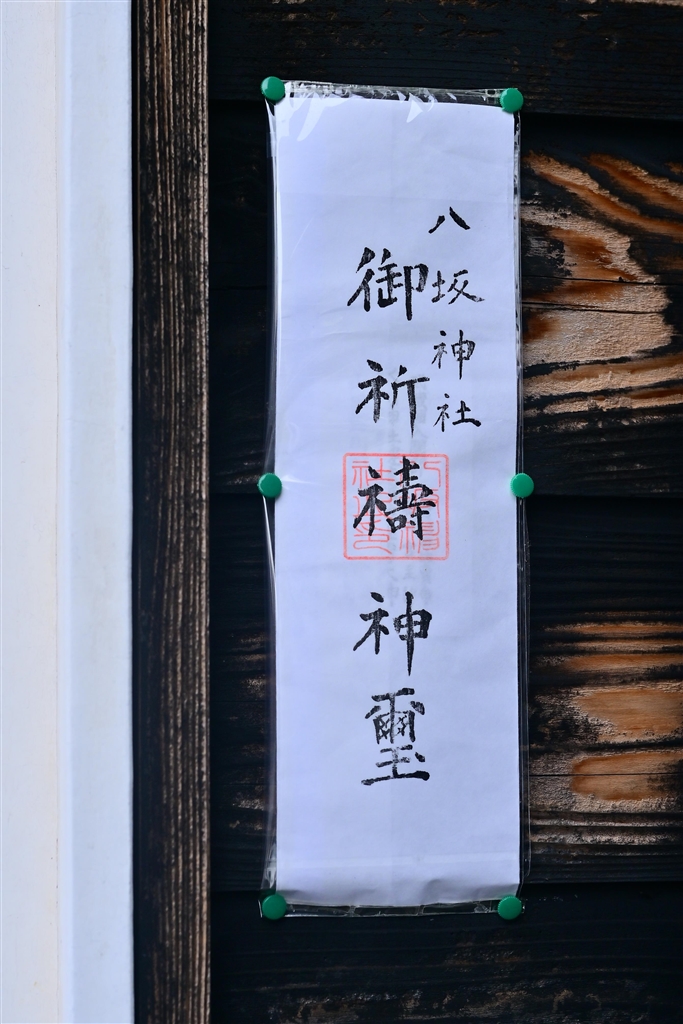 八坂神社
御祈禱神璽